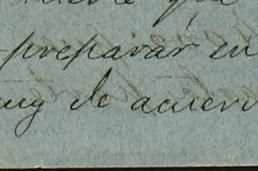 que
preparar en
uy de acuer